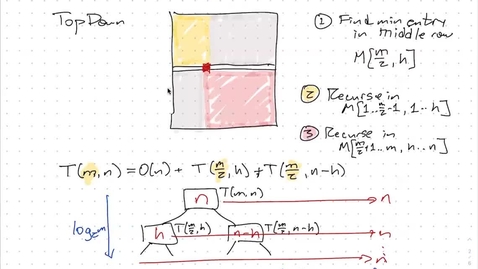 TopDown
① Find min entry
in middle row
M[m/2, h]
② Recurse in
M[1..m/2-1, 1..h]
③ Recurse in
M[m/2+1..m, h..n]
T(m,n) = O(n) + T(m/2, h) + T(m/2, n-h)
n T(m,n) n
log₂m h T(m/2,h) n-h T(m/2,n-h) n
n